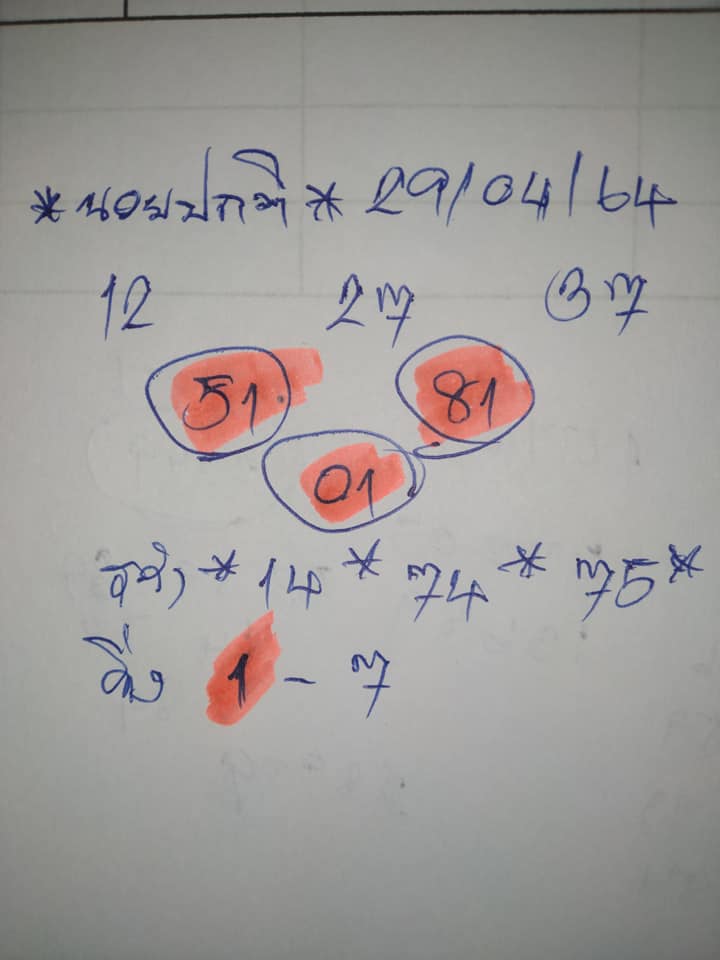 *นอยปกติ* 29/04/64
12 27 37
51 81
01
*14 * 74 * 75*
1 - 7